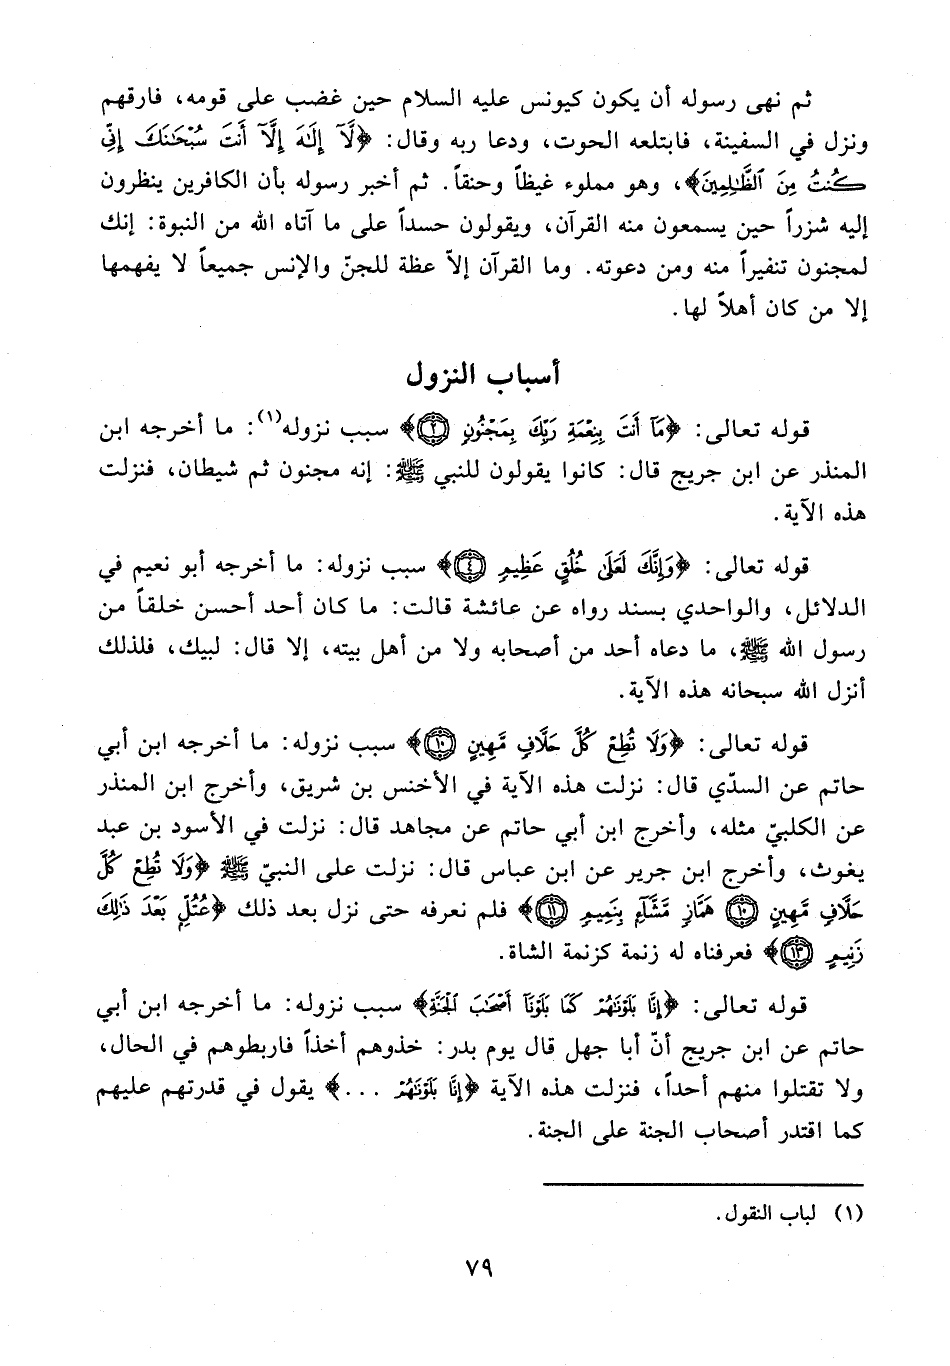 ثم نهى رسوله أن يكون كيونس عليه السلام حين غضب على قومه، فارقهم
ونزل في السفينة، فابتلعه الحوت، ودعا ربه وقال: ﴿لَّآ إِلَٰهَ إِلَّآ أَنتَ سُبْحَٰنَكَ إِنِّي
كُنتُ مِنَ ٱلظَّٰلِمِينَ﴾، وهو مملوء غيظاً وحنقاً. ثم أخبر رسوله بأن الكافرين ينظرون
إليه شزراً حين يسمعون منه القرآن، ويقولون حسداً على ما آتاه الله من النبوة: إنك
لمجنون تنفيراً منه ومن دعوته. وما القرآن إلاّ عظة للجنّ والإنس جميعاً لا يفهمها
إلا من كان أهلاً لها.
أسباب النزول
قوله تعالى: ﴿مَآ أَنتَ بِنِعْمَةِ رَبِّكَ بِمَجْنُونٍ ۝٢﴾ سبب نزوله(١): ما أخرجه ابن
المنذر عن ابن جريج قال: كانوا يقولون للنبي ﷺ: إنه مجنون ثم شيطان، فنزلت
هذه الآية.
قوله تعالى: ﴿وَإِنَّكَ لَعَلَىٰ خُلُقٍ عَظِيمٍ ۝٤﴾ سبب نزوله: ما أخرجه أبو نعيم في
الدلائل، والواحدي بسند رواه عن عائشة قالت: ما كان أحد أحسن خلقاً من
رسول الله ﷺ، ما دعاه أحد من أصحابه ولا من أهل بيته، إلا قال: لبيك، فلذلك
أنزل الله سبحانه هذه الآية.
قوله تعالى: ﴿وَلَا تُطِعْ كُلَّ حَلَّافٍ مَّهِينٍ ۝١٠﴾ سبب نزوله: ما أخرجه ابن أبي
حاتم عن السدّي قال: نزلت هذه الآية في الأخنس بن شريق، وأخرج ابن المنذر
عن الكلبيّ مثله، وأخرج ابن أبي حاتم عن مجاهد قال: نزلت في الأسود بن عبد
يغوث، وأخرج ابن جرير عن ابن عباس قال: نزلت على النبيّ ﷺ ﴿وَلَا تُطِعْ كُلَّ
حَلَّافٍ مَّهِينٍ ۝١٠ هَمَّازٍ مَّشَّآءٍ بِنَمِيمٍ ۝١١﴾ فلم نعرفه حتى نزل بعد ذلك ﴿عُتُلٍّ بَعْدَ ذَٰلِكَ
زَنِيمٍ ۝١٣﴾ فعرفناه له زنمة كزنمة الشاة.
قوله تعالى: ﴿إِنَّا بَلَوْنَٰهُمْ كَمَا بَلَوْنَآ أَصْحَٰبَ ٱلْجَنَّةِ﴾ سبب نزوله: ما أخرجه ابن أبي
حاتم عن ابن جريج أنّ أبا جهل قال يوم بدر: خذوهم أخذاً فاربطوهم في الحال،
ولا تقتلوا منهم أحداً، فنزلت هذه الآية ﴿إِنَّا بَلَوْنَٰهُمْ ...﴾ يقول في قدرتهم عليهم
كما اقتدر أصحاب الجنة على الجنة.
(١) لباب النقول.
٧٩